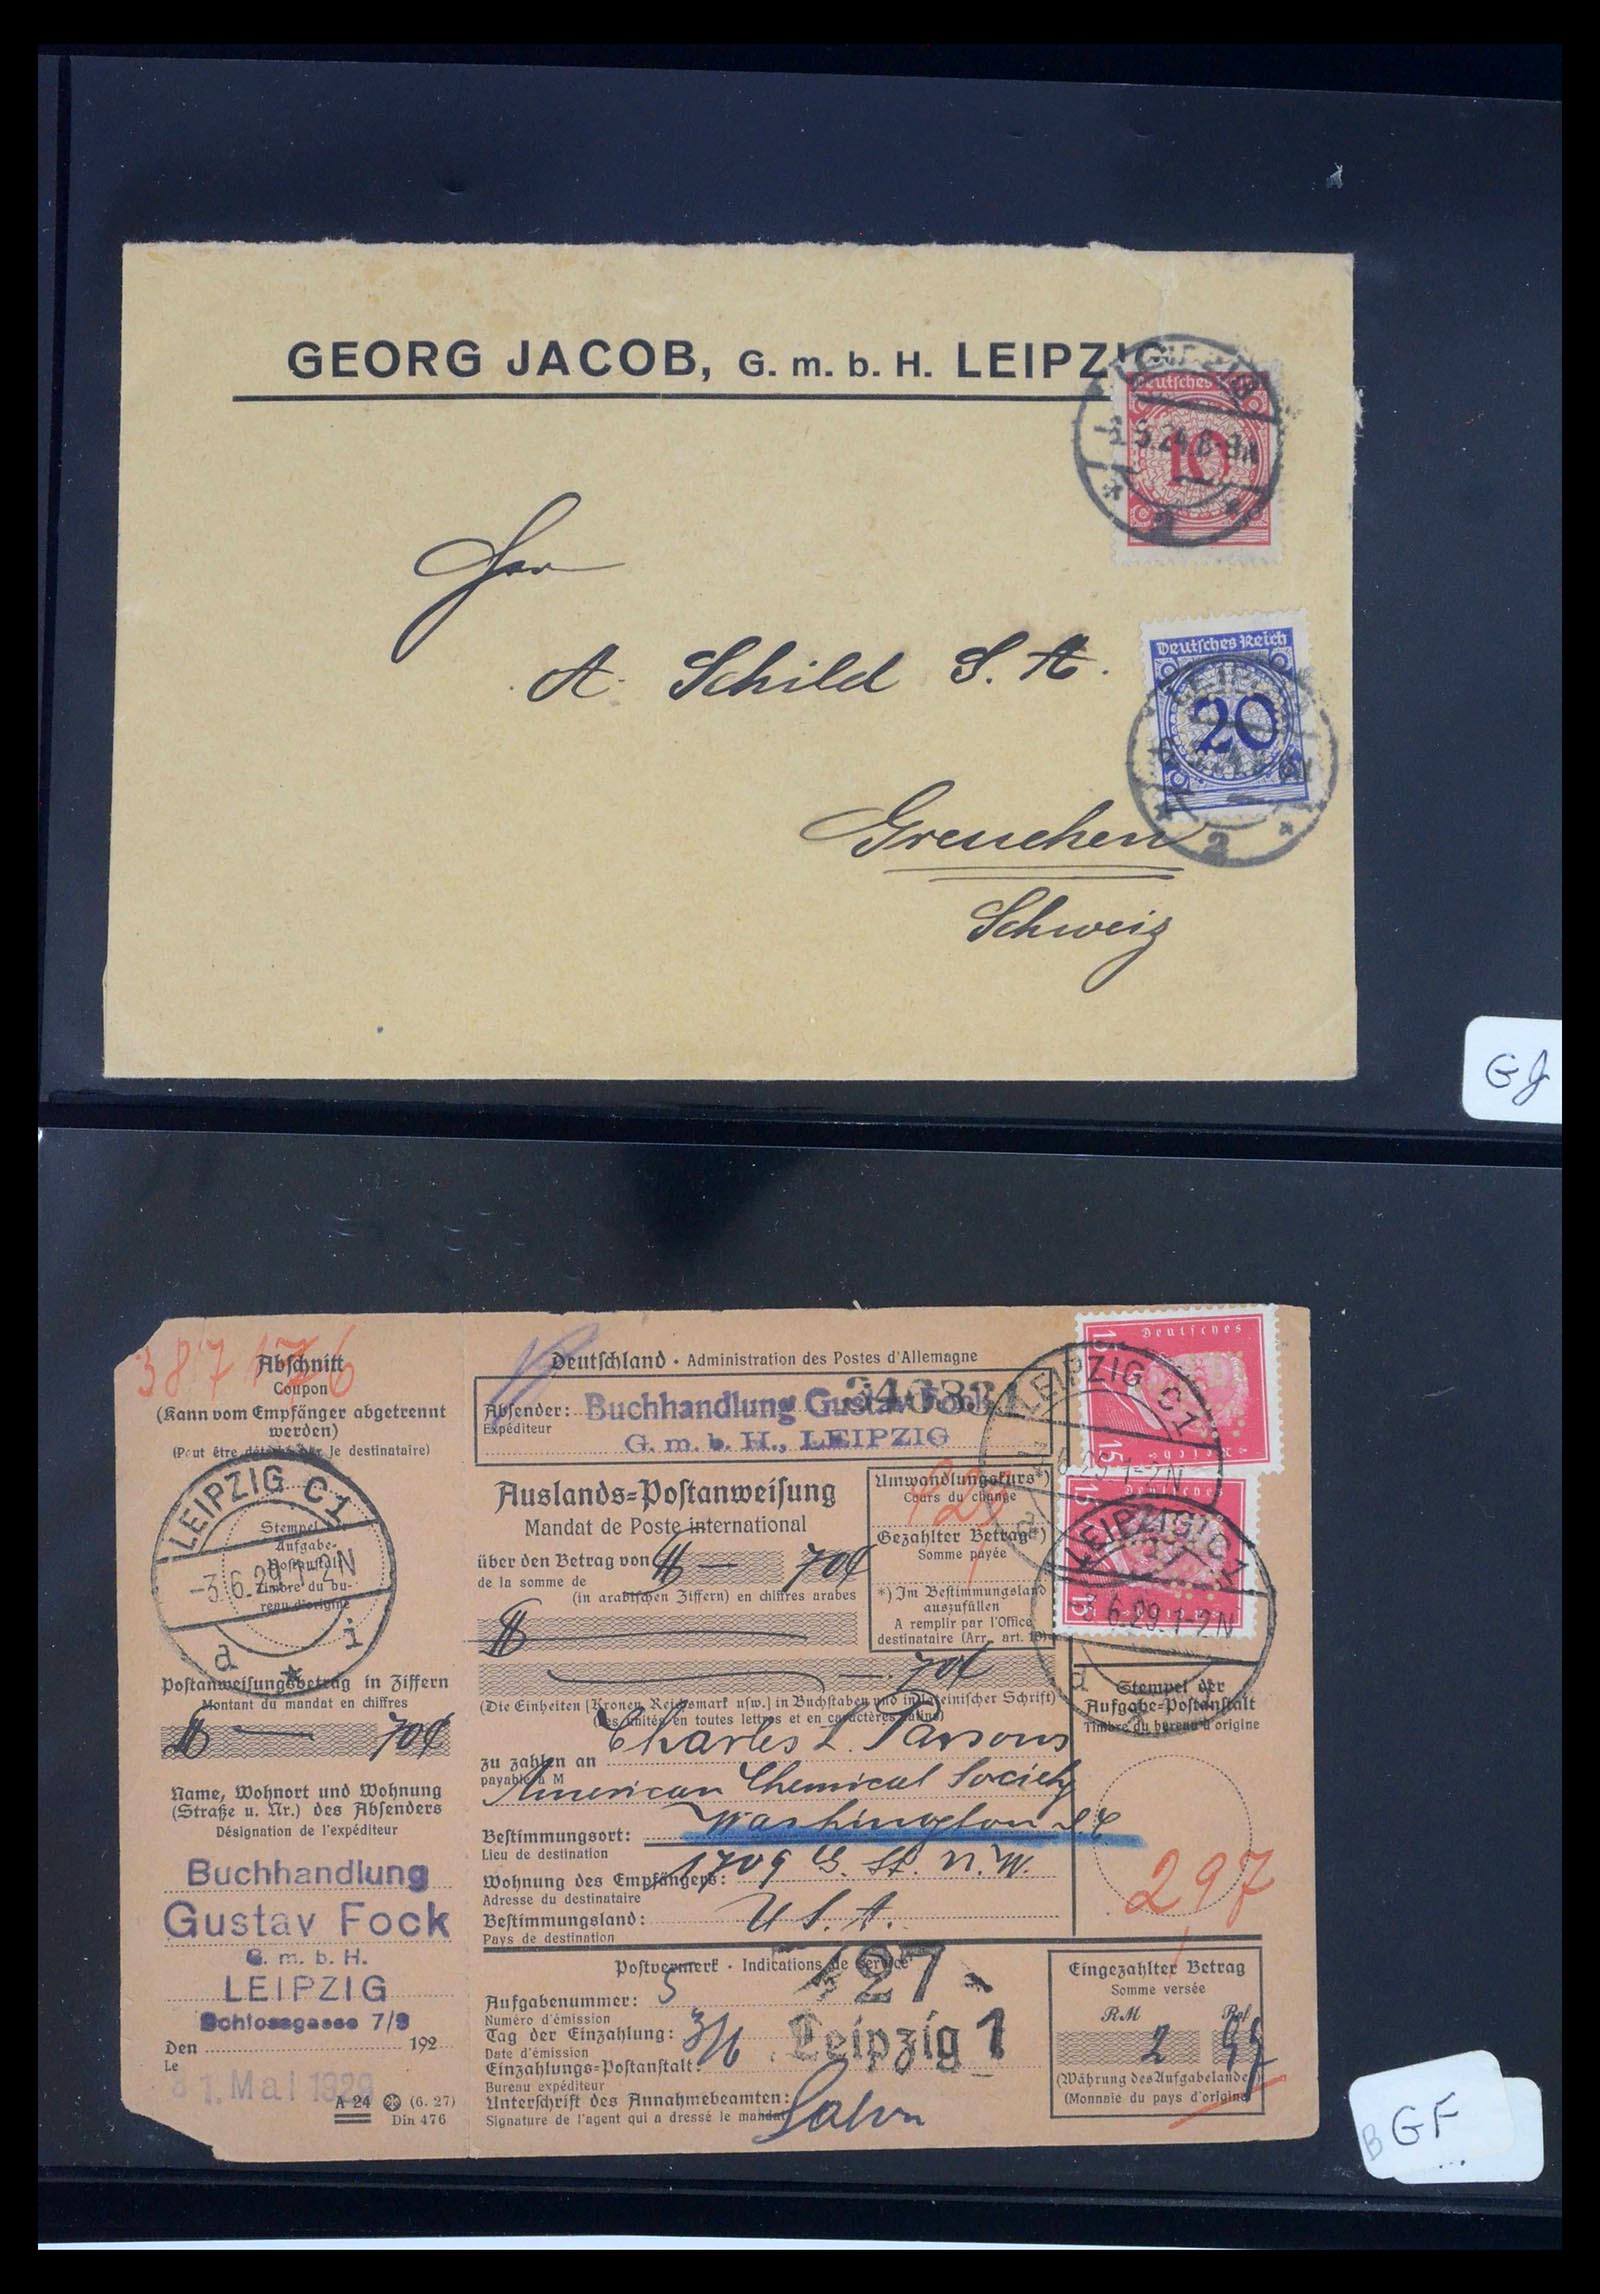 GEORG JACOB, G. m. b. H. LEIPZIG
Deutsches
10
Herr
A. Schild S. A.
Deutsches Reich
20
2
Grenchen
Schweiz
GJ
387176
Abschnitt
Coupon
(Kann vom Empfänger abgetrennt
werden)
(Peut être détaché par le destinataire)
LEIPZIG C1
-3.6.29.1-2N
a i
Stempel der
Aufgabe-
Postanstalt
Timbre du bu-
reau d'origine
Postanweisungsbetrag in Ziffern
Montant du mandat en chiffres
$ — 70¢
Name, Wohnort und Wohnung
(Straße u. Nr.) des Absenders
Désignation de l'expéditeur
Buchhandlung
Gustav Fock
G. m. b. H.
LEIPZIG
Schlossgasse 7/9
Den 192
Le
31. Mai 1929
A 24 (6. 27)
Din 476
Deutschland · Administration des Postes d'Allemagne
Absender: Buchhandlung Gustav Fock
Expéditeur
G. m. b. H., LEIPZIG
Auslands=Postanweisung
Mandat de Poste international
über den Betrag von $ — 70¢
de la somme de
(in arabischen Ziffern) en chiffres arabes
$ — 70¢
(Die Einheiten [Kronen, Reichsmark usw.] in Buchstaben und in lateinischer Schrift)
(Les unités en toutes lettres et en caractères latins)
zu zahlen an Charles L. Parsons
payable à M
American Chemical Society
Bestimmungsort: Washington D.C
Lieu de destination
Wohnung des Empfängers: 1709 G. St. N.W.
Adresse du destinataire
Bestimmungsland: U.S.A.
Pays de destination
Umwandlungskurs*)
Cours du change
Gezahlter Betrag*)
Somme payée
*) Im Bestimmungsland
auszufüllen
A remplir par l'Office
destinataire (Arr. art. 10)
Deutsches
15
15
LEIPZIG C1
6.29.1-2N
Deutsches
15
15
LEIPZIG C1
-3.6.29.1-2N
Stempel der
Aufgabe=Postanstalt
Timbre du bureau d'origine
297
Postvermerk · Indications de service
127
Leipzig 1
Aufgabenummer: 5
Numéro d'émission
Tag der Einzahlung: 3/6
Date d'émission
Einzahlungs=Postanstalt:
Bureau expéditeur
Unterschrift des Annahmebeamten:
Signature de l'agent qui a dressé le mandat
Eingezahlter Betrag
Somme versée
RM Rpf
2 97
(Währung des Aufgabelandes)
(Monnaie du pays d'origine)
B GF